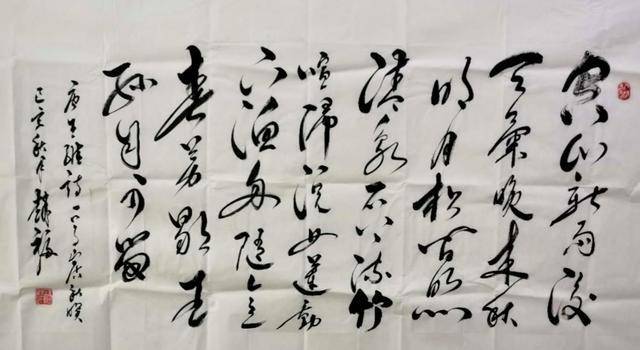 空山新雨後
天氣晚来秋
明月松间照
清泉石上流竹
喧歸浣女蓮動
下渔舟随意
春芳歇王
孫自可留
唐王維詩一首山居秋暝
己亥秋月